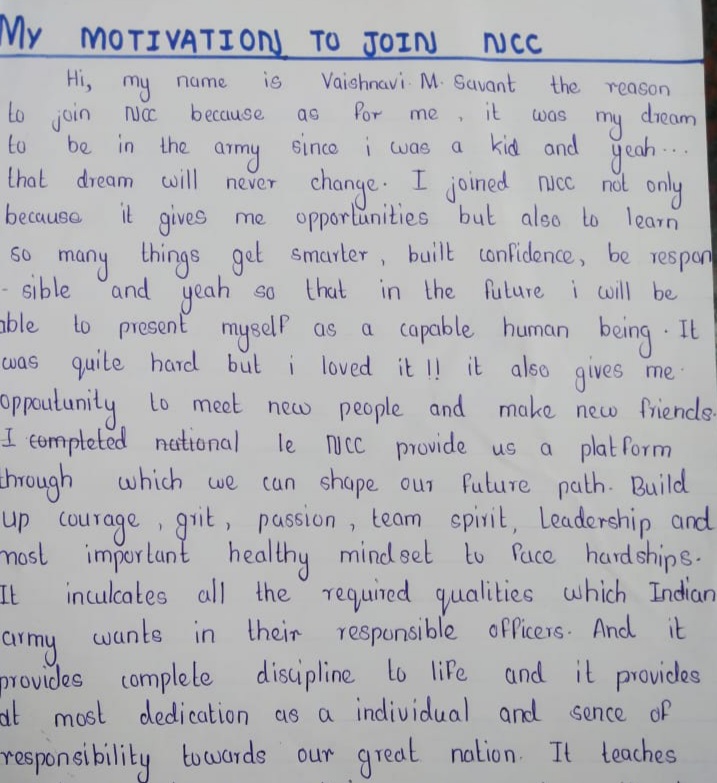 MY MOTIVATION TO JOIN NCC
Hi, my name is Vaishnavi. M. Savant the reason
to join NCC because as for me, it was my dream
to be in the army since i was a kid and yeah...
that dream will never change. I joined NCC not only
because it gives me opportunities but also to learn
so many things get smarter, built confidence, be respon
- sible and yeah so that in the future i will be
able to present myself as a capable human being. It
was quite hard but i loved it !! it also gives me
oppoutunity to meet new people and make new friends.
I completed national le NCC provide us a platform
through which we can shape our future path. Build
up courage, grit, passion, team spirit, Leadership and
most important healthy mindset to face hardships.
It inculcates all the required qualities which Indian
army wants in their responsible officers. And it
provides complete discipline to life and it provides
at most dedication as a individual and sence of
responsibility towards our great nation. It teaches